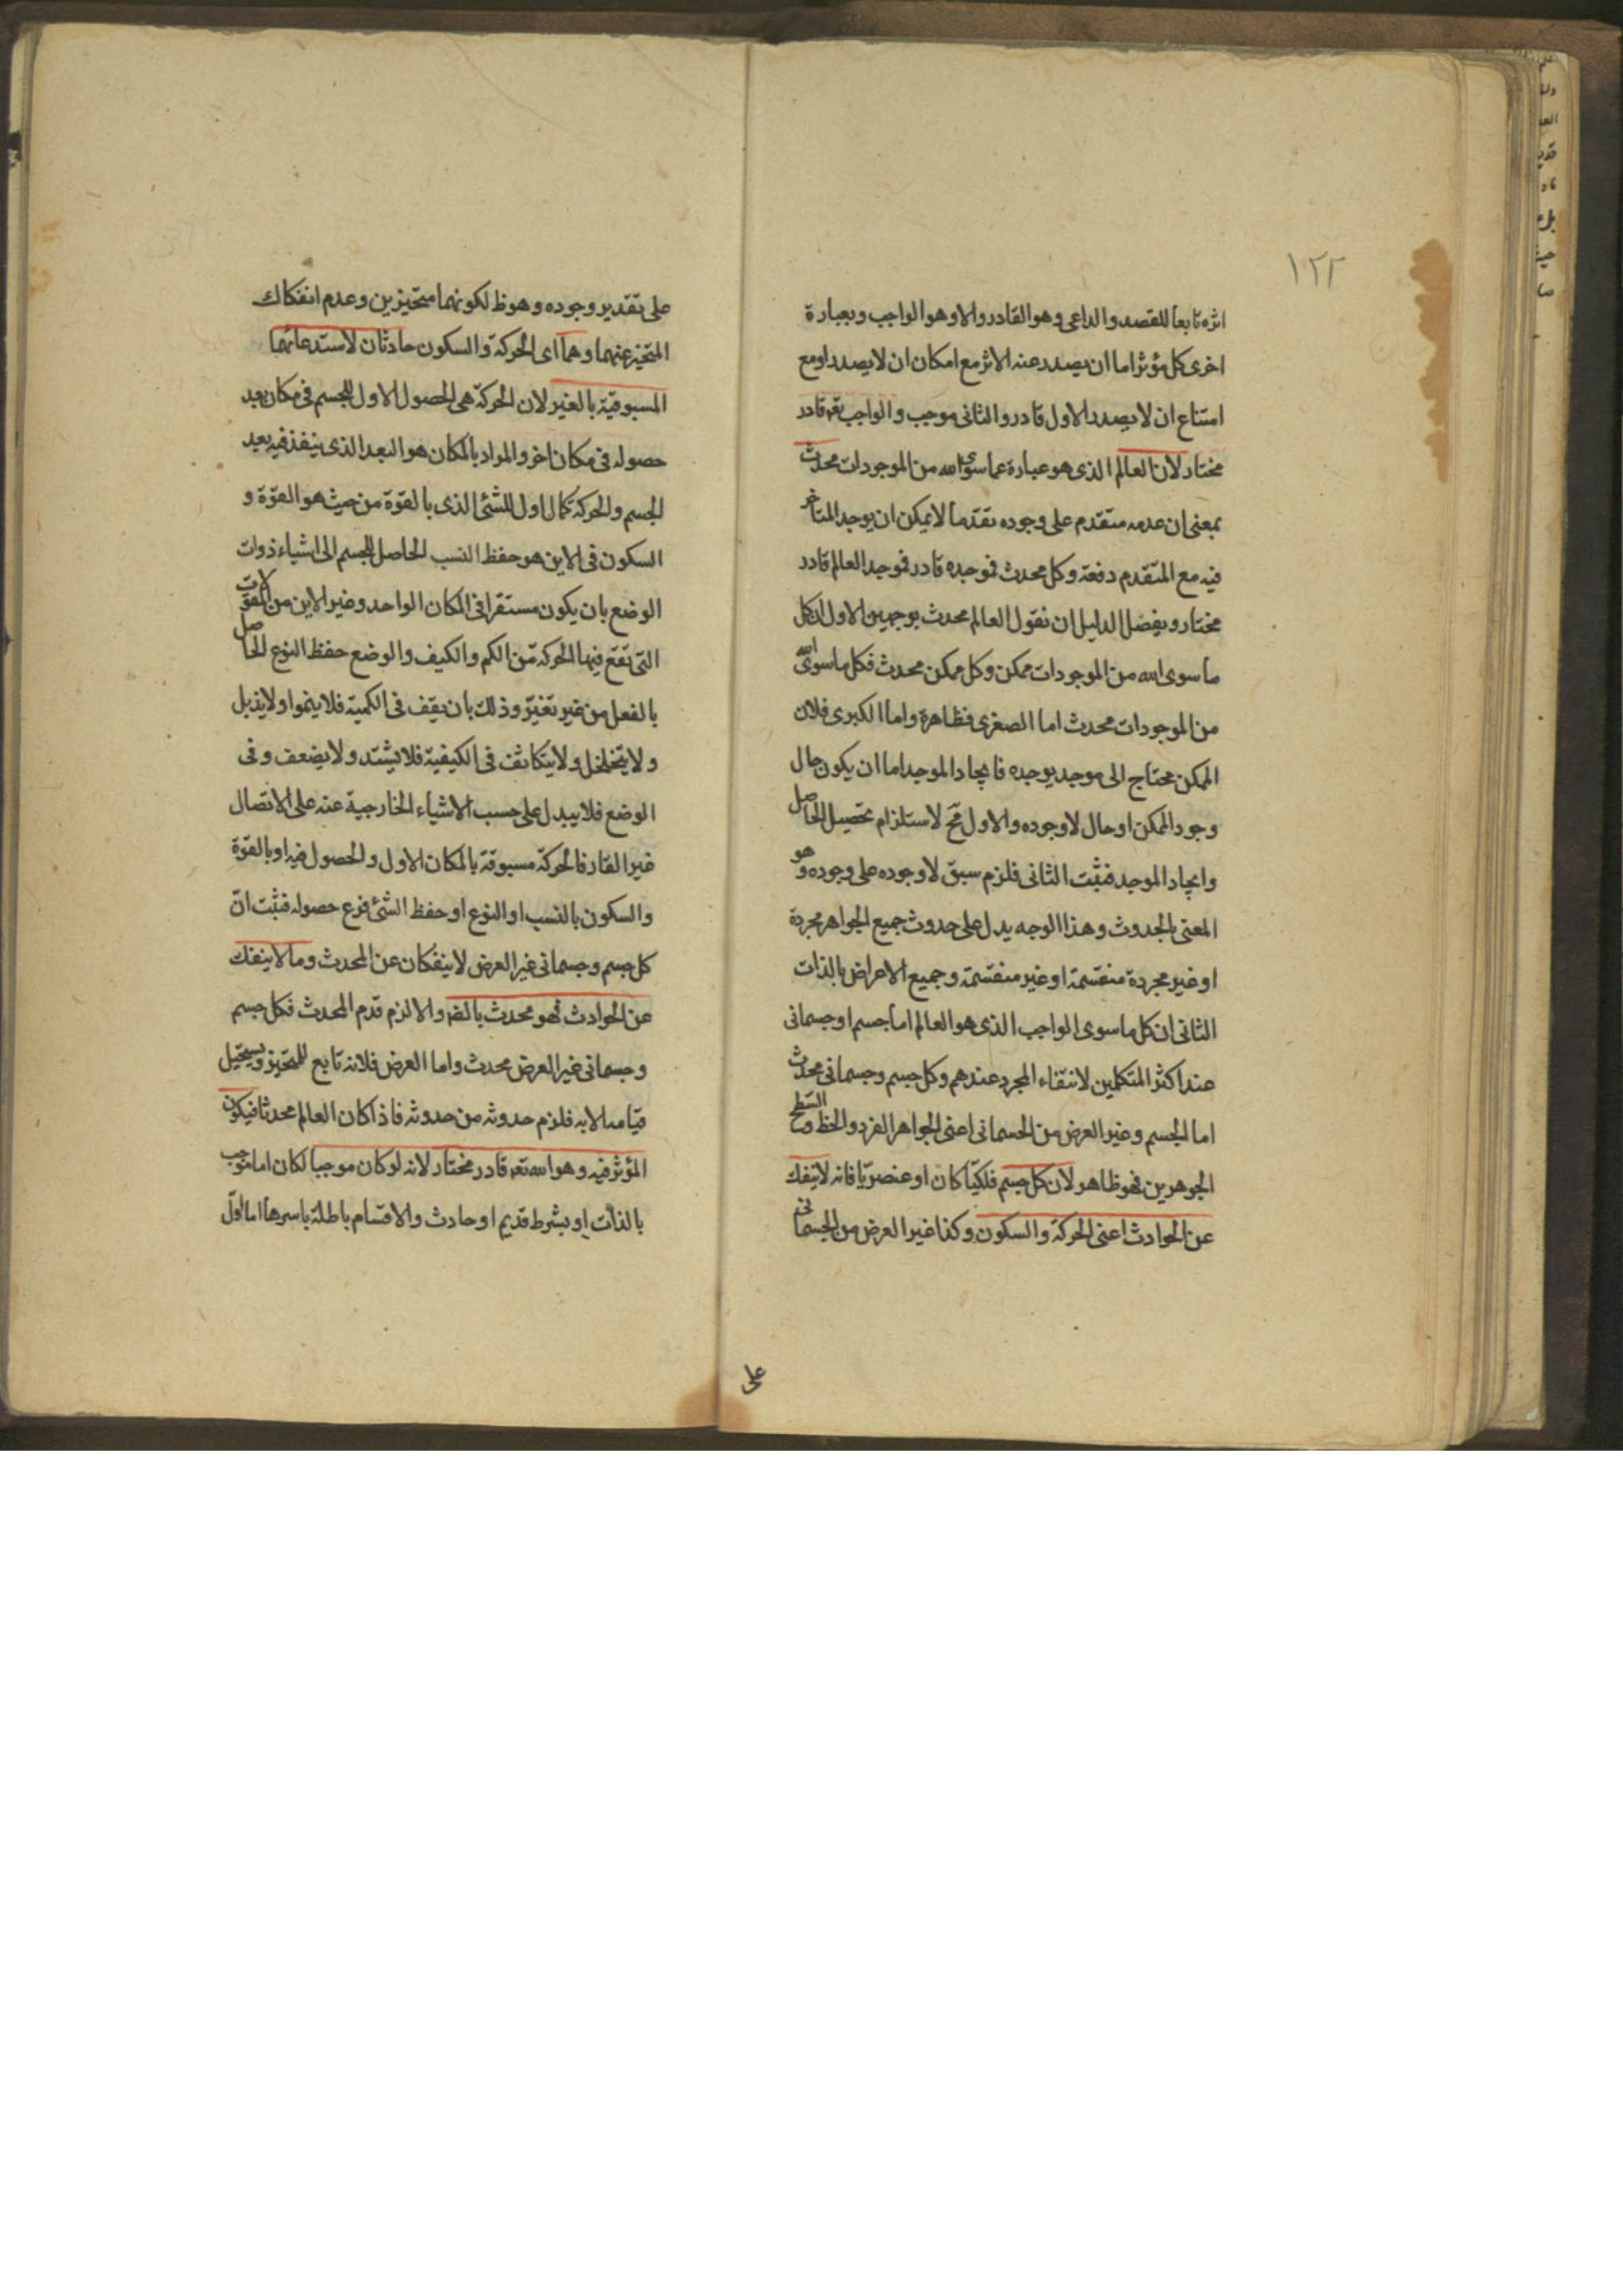 ١٢٢
اثره تابعا للقصد والداعى وهو القادر والا وهو الواجب وبعبارة
اخرى كل مؤثر اما ان يصدر عنه الاثر مع امكان ان لا يصدر او مع
امتناع ان لا يصدر الاول قادر والثانى موجب والواجب تعه قادر
مختار لان العالم الذى هو عبارة عما سوى الله من الموجودات محدث
بمعنى ان عدمه متقدم على وجوده تقدما لا يمكن ان يوجد المتاخر
فيه مع المتقدم دفعة وكل محدث فموجده قادر فموجد العالم قادر
مختار وبفضل الدليل ان نقول العالم محدث بوجهين الاول ان كل
ما سوى الله من الموجودات ممكن وكل ممكن محدث فكل ما سوى الله
من الموجودات محدث اما الصغرى فظاهرة واما الكبرى فلان
الممكن محتاج الى موجد يوجده فايجاد الموجد اما ان يكون حال
وجود الممكن او حال لا وجوده والاول مح لاستلزام تحصيل الحاصل
وايجاد الموجد فثبت الثانى فلزم سبق لا وجوده على وجوده وهو
المعنى بالحدوث وهذا الوجه يدل على حدوث جميع الجواهر مجردة
او غير مجردة منقسمة او غير منقسمة وجميع الاعراض بالذات
الثانى ان كل ما سوى الواجب الذى هو العالم اما جسم او جسمانى
عند اكثر المتكلمين لانتفاء المجرد عندهم وكل جسم وجسمانى محدث
اما الجسم وغير العرض من الجسمانى اعنى الجواهر الفرد والخط والسطح
الجوهرين فهو ظاهر لان كل جسم فلكيا كان او عنصريا فانه لا ينفك
عن الحوادث اعنى الحركة والسكون وكذا غير العرض من الجسمانى
على
على تقدير وجوده وهو ظ لكونهما متحيزين وعدم انفكاك
المتحيز عنهما وهما اى الحركة والسكون حادثان لاستدعائهما
المسبوقية بالغير لان الحركة هى الحصول الاول للجسم فى مكان بعد
حصوله فى مكان اخر والمراد بالمكان هو البعد الذى ينفذ فيه بعد
الجسم والحركة كمال اول للشئ الذى بالقوة من حيث هو القوة و
السكون فى الاين هو حفظ النسب الحاصل للجسم الى اشياء ذوات
الوضع بان يكون مستقرا فى المكان الواحد وغير الاين من المقولات
التى تقع فيها الحركة من الكم والكيف والوضع حفظ النوع الحاصل
بالفعل من غير تغير وذلك بان يقف فى الكمية فلا ينموا ولا يذبل
ولا يتخلخل ولا يتكاثف فى الكيفية فلا يشتد ولا يضعف وفى
الوضع فلا يبدل على حسب الاشياء الخارجية عنه على الاتصال
غير القار فالحركة مسبوقة بالمكان الاول والحصول فيه او بالقوة
والسكون بالنسب او النوع او حفظ الشئ فرع حصوله فثبت ان
كل جسم وجسمانى غير العرض لا ينفكان عن المحدث وما لا ينفك
عن الحوادث فهو محدث بالضه والا لزم قدم المحدث فكل جسم
وجسمانى غير العرض محدث واما العرض فلانه تابع للمتحيز ويستحيل
قيامه الا به فلزم حدوثه من حدوثه فاذا كان العالم محدثا فيكون
المؤثر فيه وهو الله تعه قادر مختار لانه لو كان موجبا لكان اما موجب
بالذات او بشرط قديم او حادث والاقسام باطلة باسرها اما الاول